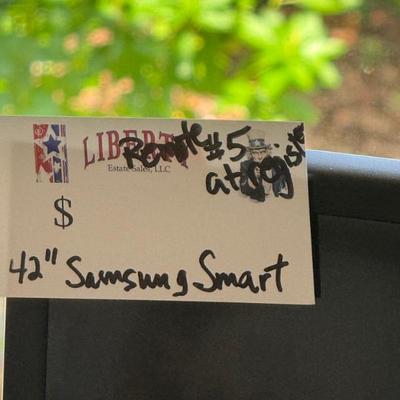 LIBERTY
Remote #5
Estate Sales, LLC
at register
$
42" Samsung Smart